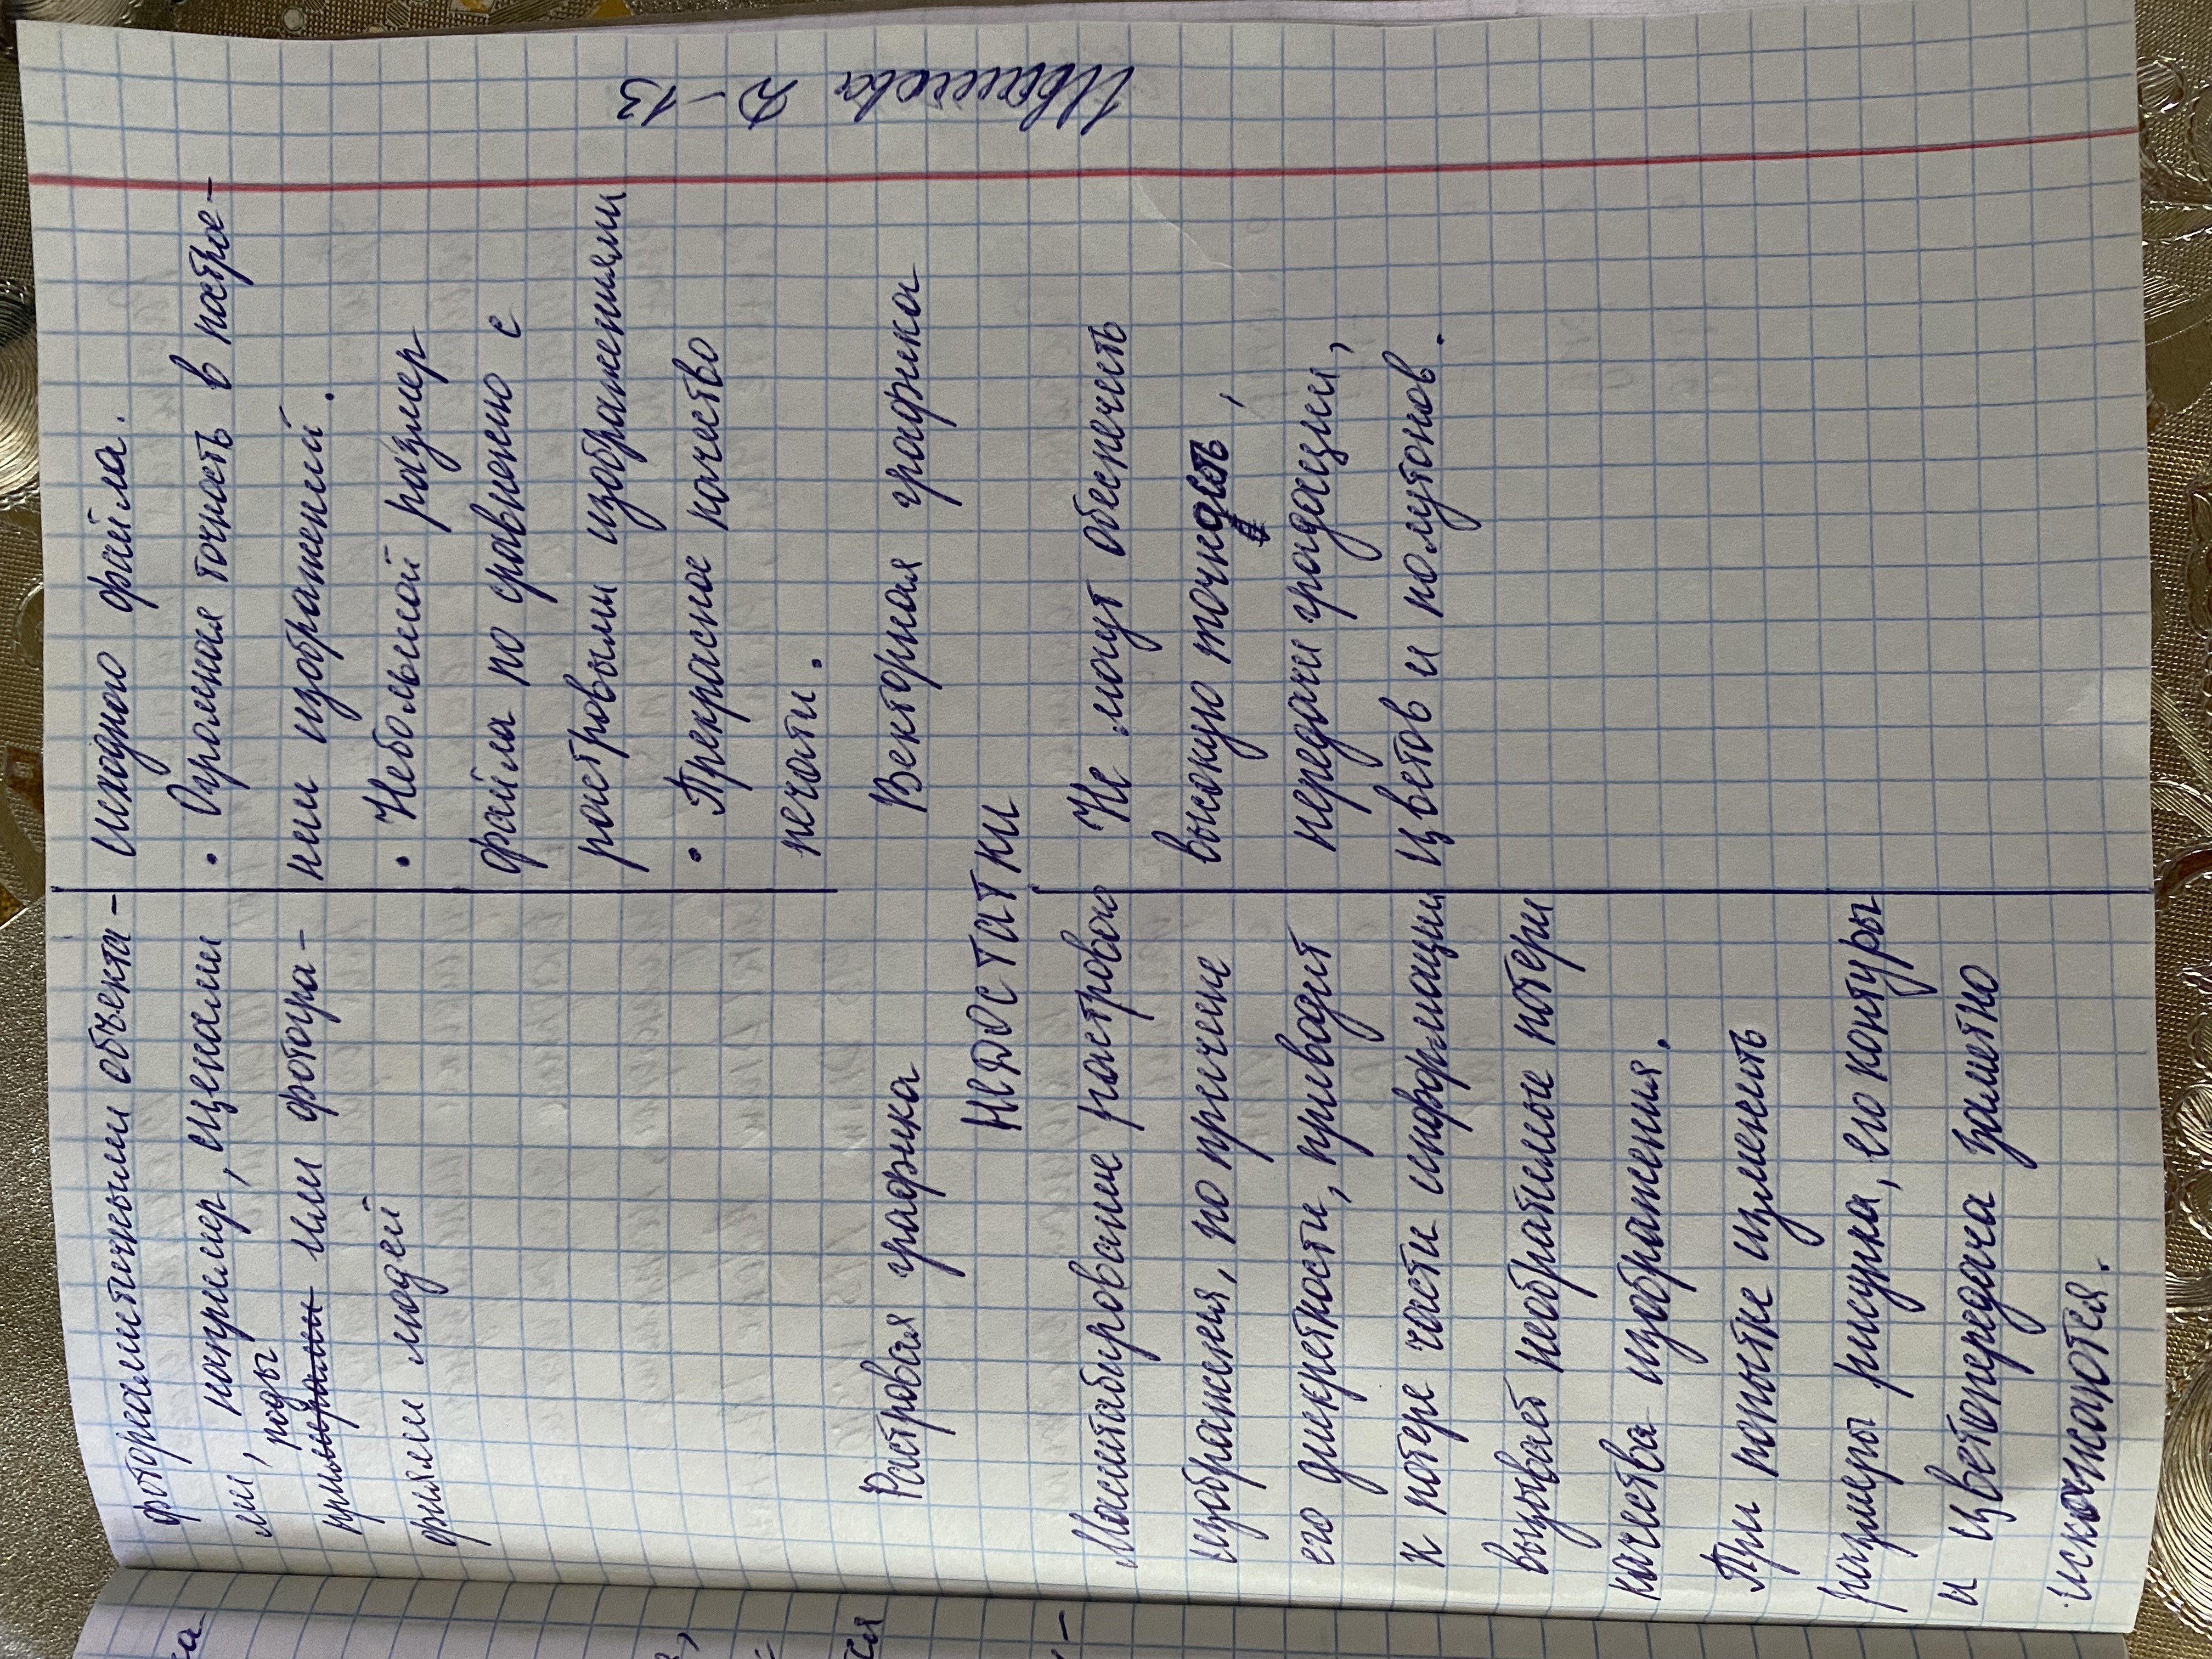 фотореалистичными объекта-
ми, например, сценами
природы
примерами или фотогра-
фиями людей
исходного файла.
• Огромная точность в построе-
нии изображений.
• Небольшой размер
файла по сравнению с
растровыми изображениями
• Прекрасное качество
печати.
Растровая графика Векторная графика
НЕДОСТАТКИ
Масштабирование растрового
изображения, по причине
его дискретности, приводит
к потере части информации
вызывает необратимые потери
качества изображения.
При попытке изменить
размеры рисунка, его контуры
и цветопередача заметно
искажаются.
Не могут обеспечить
высокую точность,
передачи градации,
цветов и полутонов.
Д-13